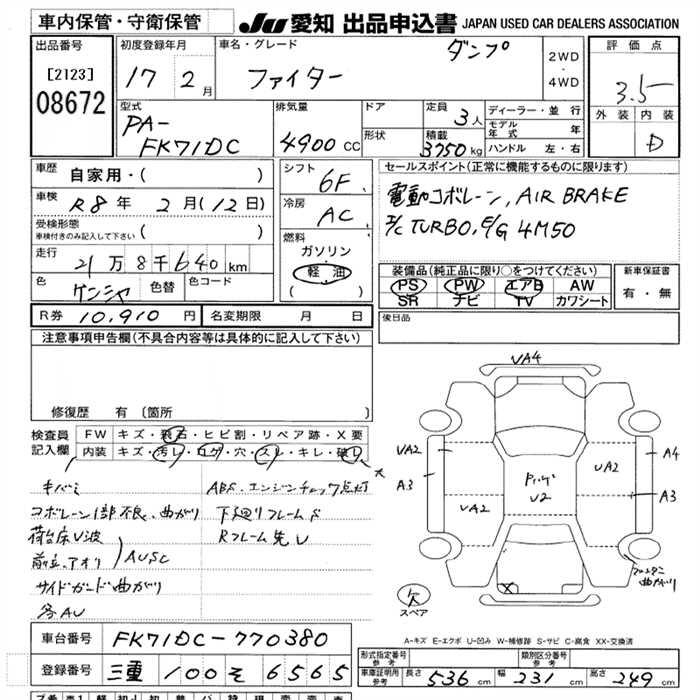 車内保管・守衛保管
JU 愛知 出品申込書 JAPAN USED CAR DEALERS ASSOCIATION
出品番号
[2123]
08672
初度登録年月
17 2月
車名・グレード
ファイター ダンプ
2WD
・
4WD
評価点
3.5
外装 内装
D
型式
PA-
FK71DC
排気量
4900 CC
ドア
形状
定員
3人
積載
3750kg
ディーラー・並行
モデル年式 年
ハンドル 左・右
車歴
自家用・( )
車検
R8年 2月(12日)
受検形態
車検付きのみ記入して下さい ( )
走行
21万8千640km
色
ケンシャ
色替
色コード
シフト
6F
冷房
AC
燃料
ガソリン
軽油
( )
セールスポイント(正常に機能するものに限ります)
電動コボレーン, AIR BRAKE
I/C TURBO, E/G 4M50
装備品(純正品に限り○をつけてください)
PS PW エアB AW
SR ナビ TV カワシート
新車保証書
有・無
R券 10,910円
名変期限 月 日
後日品
注意事項申告欄(不具合内容等は具体的に記入して下さい)
修復歴 有 〔箇所
検査員
記入欄
FW キズ・飛石・ヒビ割・リペア跡・X要
内装 キズ・汚レ・コゲ・穴・スレ・キレ・破レ
キバミ
コボレーン1部不良、曲がり
荷台床U波
前立、アオリ
AUSC
サイドガード曲がり
各AU
ABS、エンジンチェック点灯
下廻りフレームS
Rフレーム先U
VA4
VA2
A3
VA2
UA2
A4
A3
U2
X
欠
スペア
曲がり
A-キズ E-エクボ U-凹み W-補修跡 S-サビ C-腐食 XX-交換済
車台番号
FK71DC-770380
登録番号
三重 100 そ 6565
形式指定番号
参考
類別区分番号
参考
車庫証明用
参考
長さ 536cm
幅 231cm
高さ 249cm